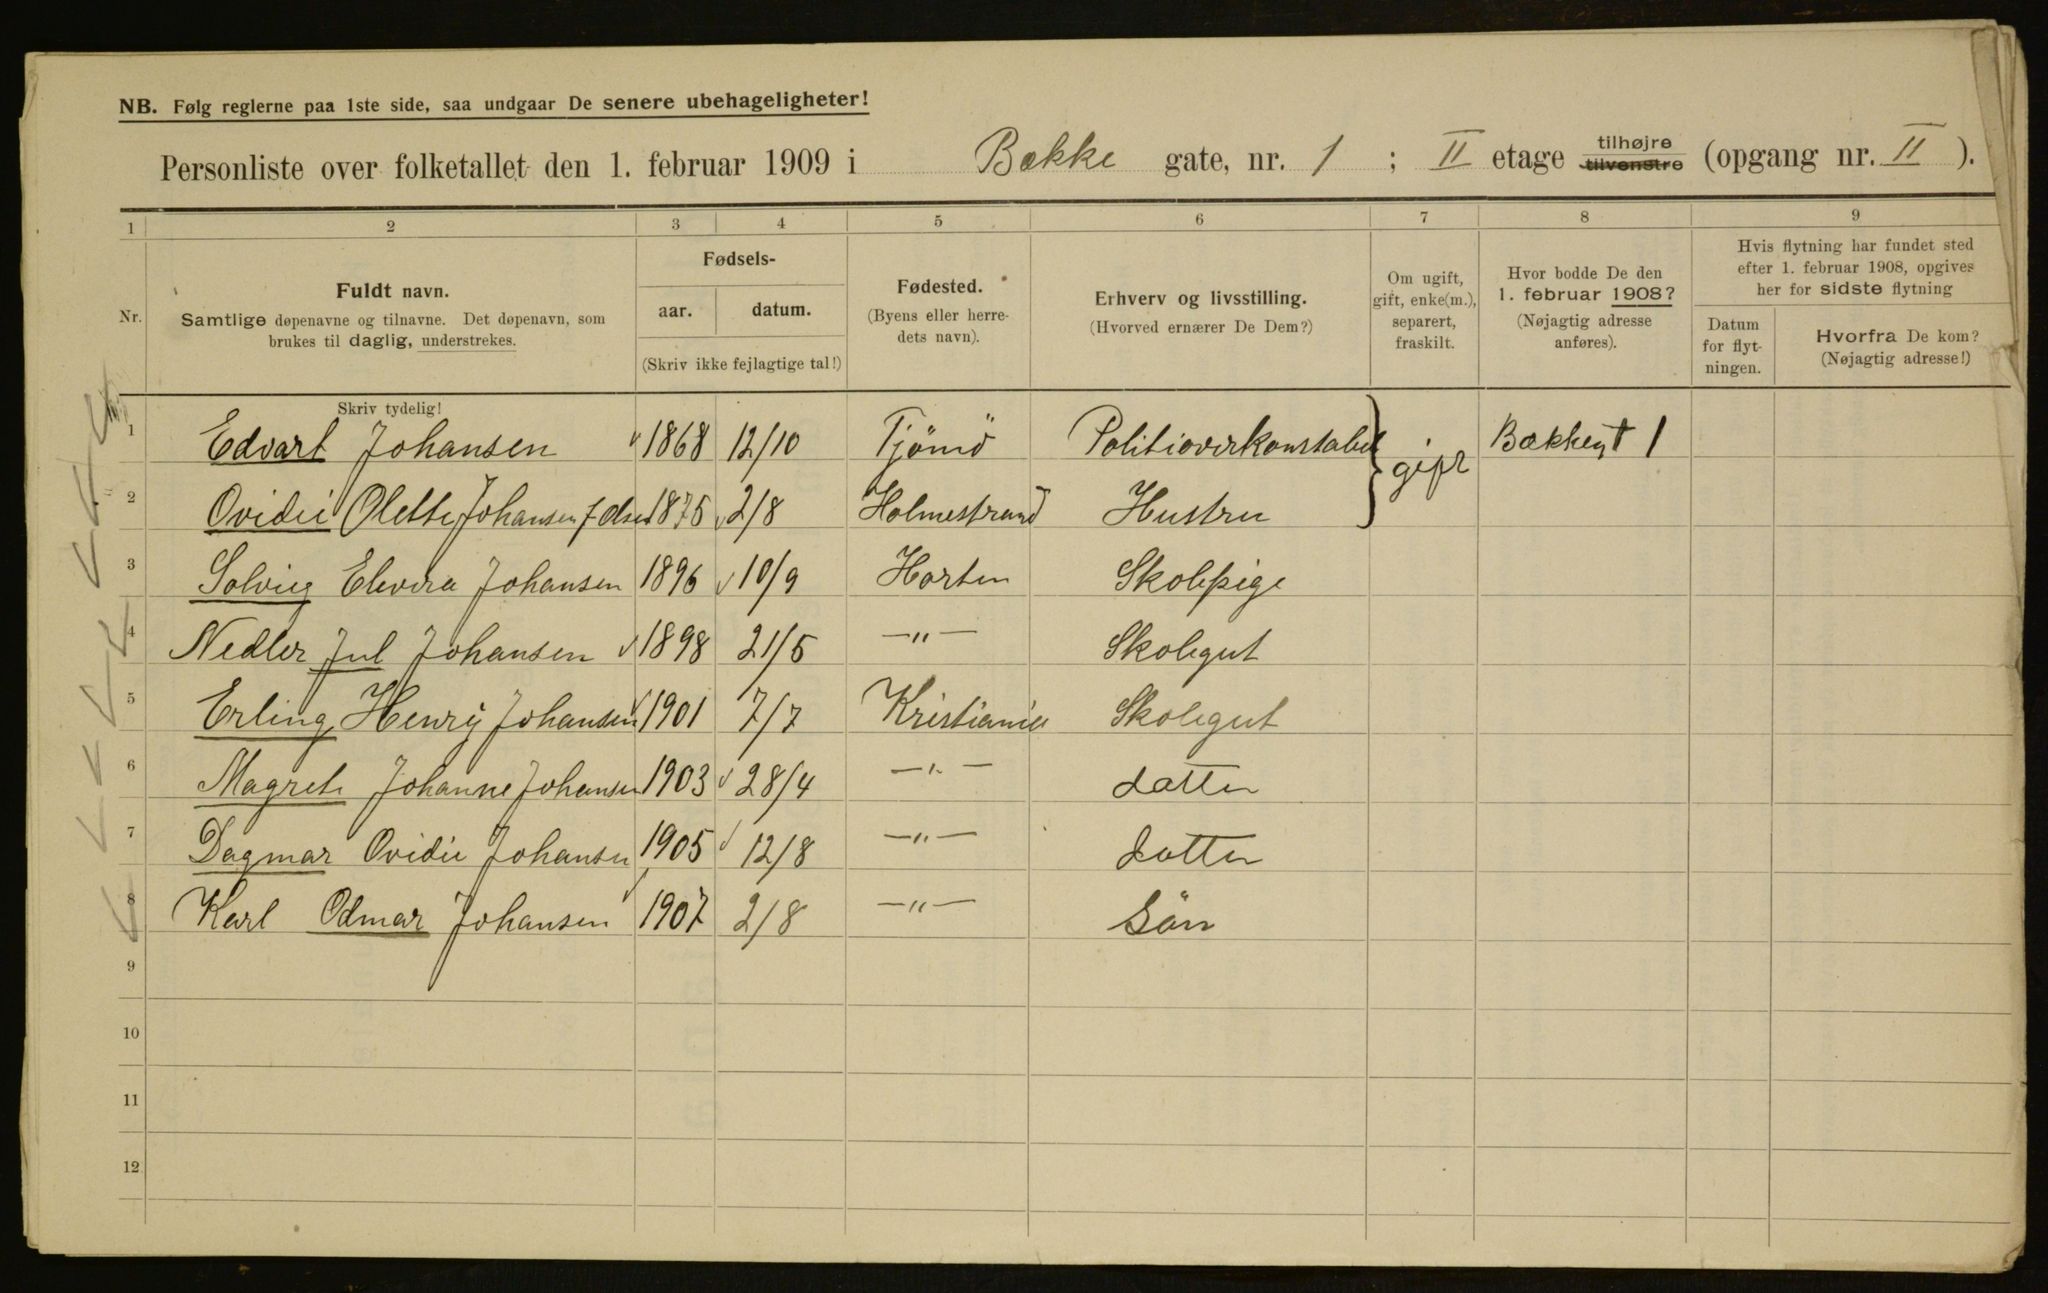 NB. Følg reglerne paa 1ste side, saa undgaar De senere ubehageligheter!
Personliste over folketallet den 1. februar 1909 i Bække gate, nr. 1 ; II etage tilhøjre tilvenstre (opgang nr. II ).
1 2 3 4 5 6 7 8 9
Nr.
Fuldt navn.
Samtlige døpenavne og tilnavne. Det døpenavn, som
brukes til daglig, understrekes.
Fødsels-
aar. datum.
(Skriv ikke fejlagtige tal!)
Fødested.
(Byens eller herre-
dets navn).
Erhverv og livsstilling.
(Hvorved ernærer De Dem?)
Om ugift,
gift, enke(m.),
separert,
fraskilt.
Hvor bodde De den
1. februar 1908?
(Nøjagtig adresse
anføres).
Hvis flytning har fundet sted
efter 1. februar 1908, opgives
her for sidste flytning
Datum
for flyt-
ningen.
Hvorfra De kom?
(Nøjagtig adresse!)
Skriv tydelig!
1 Edvart Johansen 1868 12/10 Tjömö Politioverkonstabel gift Bækkegt 1
2 Ovidie Olette Johansen 1875 2/8 Holmestrand Hustru
3 Solveig Elevira Johansen 1896 10/9 Horten Skolepige
4 Nedler Jul Johansen 1898 21/5 —"— Skolegut
5 Erling Henry Johansen 1901 7/7 Kristiania Skolegut
6 Magrete Johanne Johansen 1903 28/4 —"— datter
7 Dagmar Ovidie Johansen 1905 12/8 —"— datter
8 Karl Odmar Johansen 1907 2/8 —"— Sön
9
10
11
12